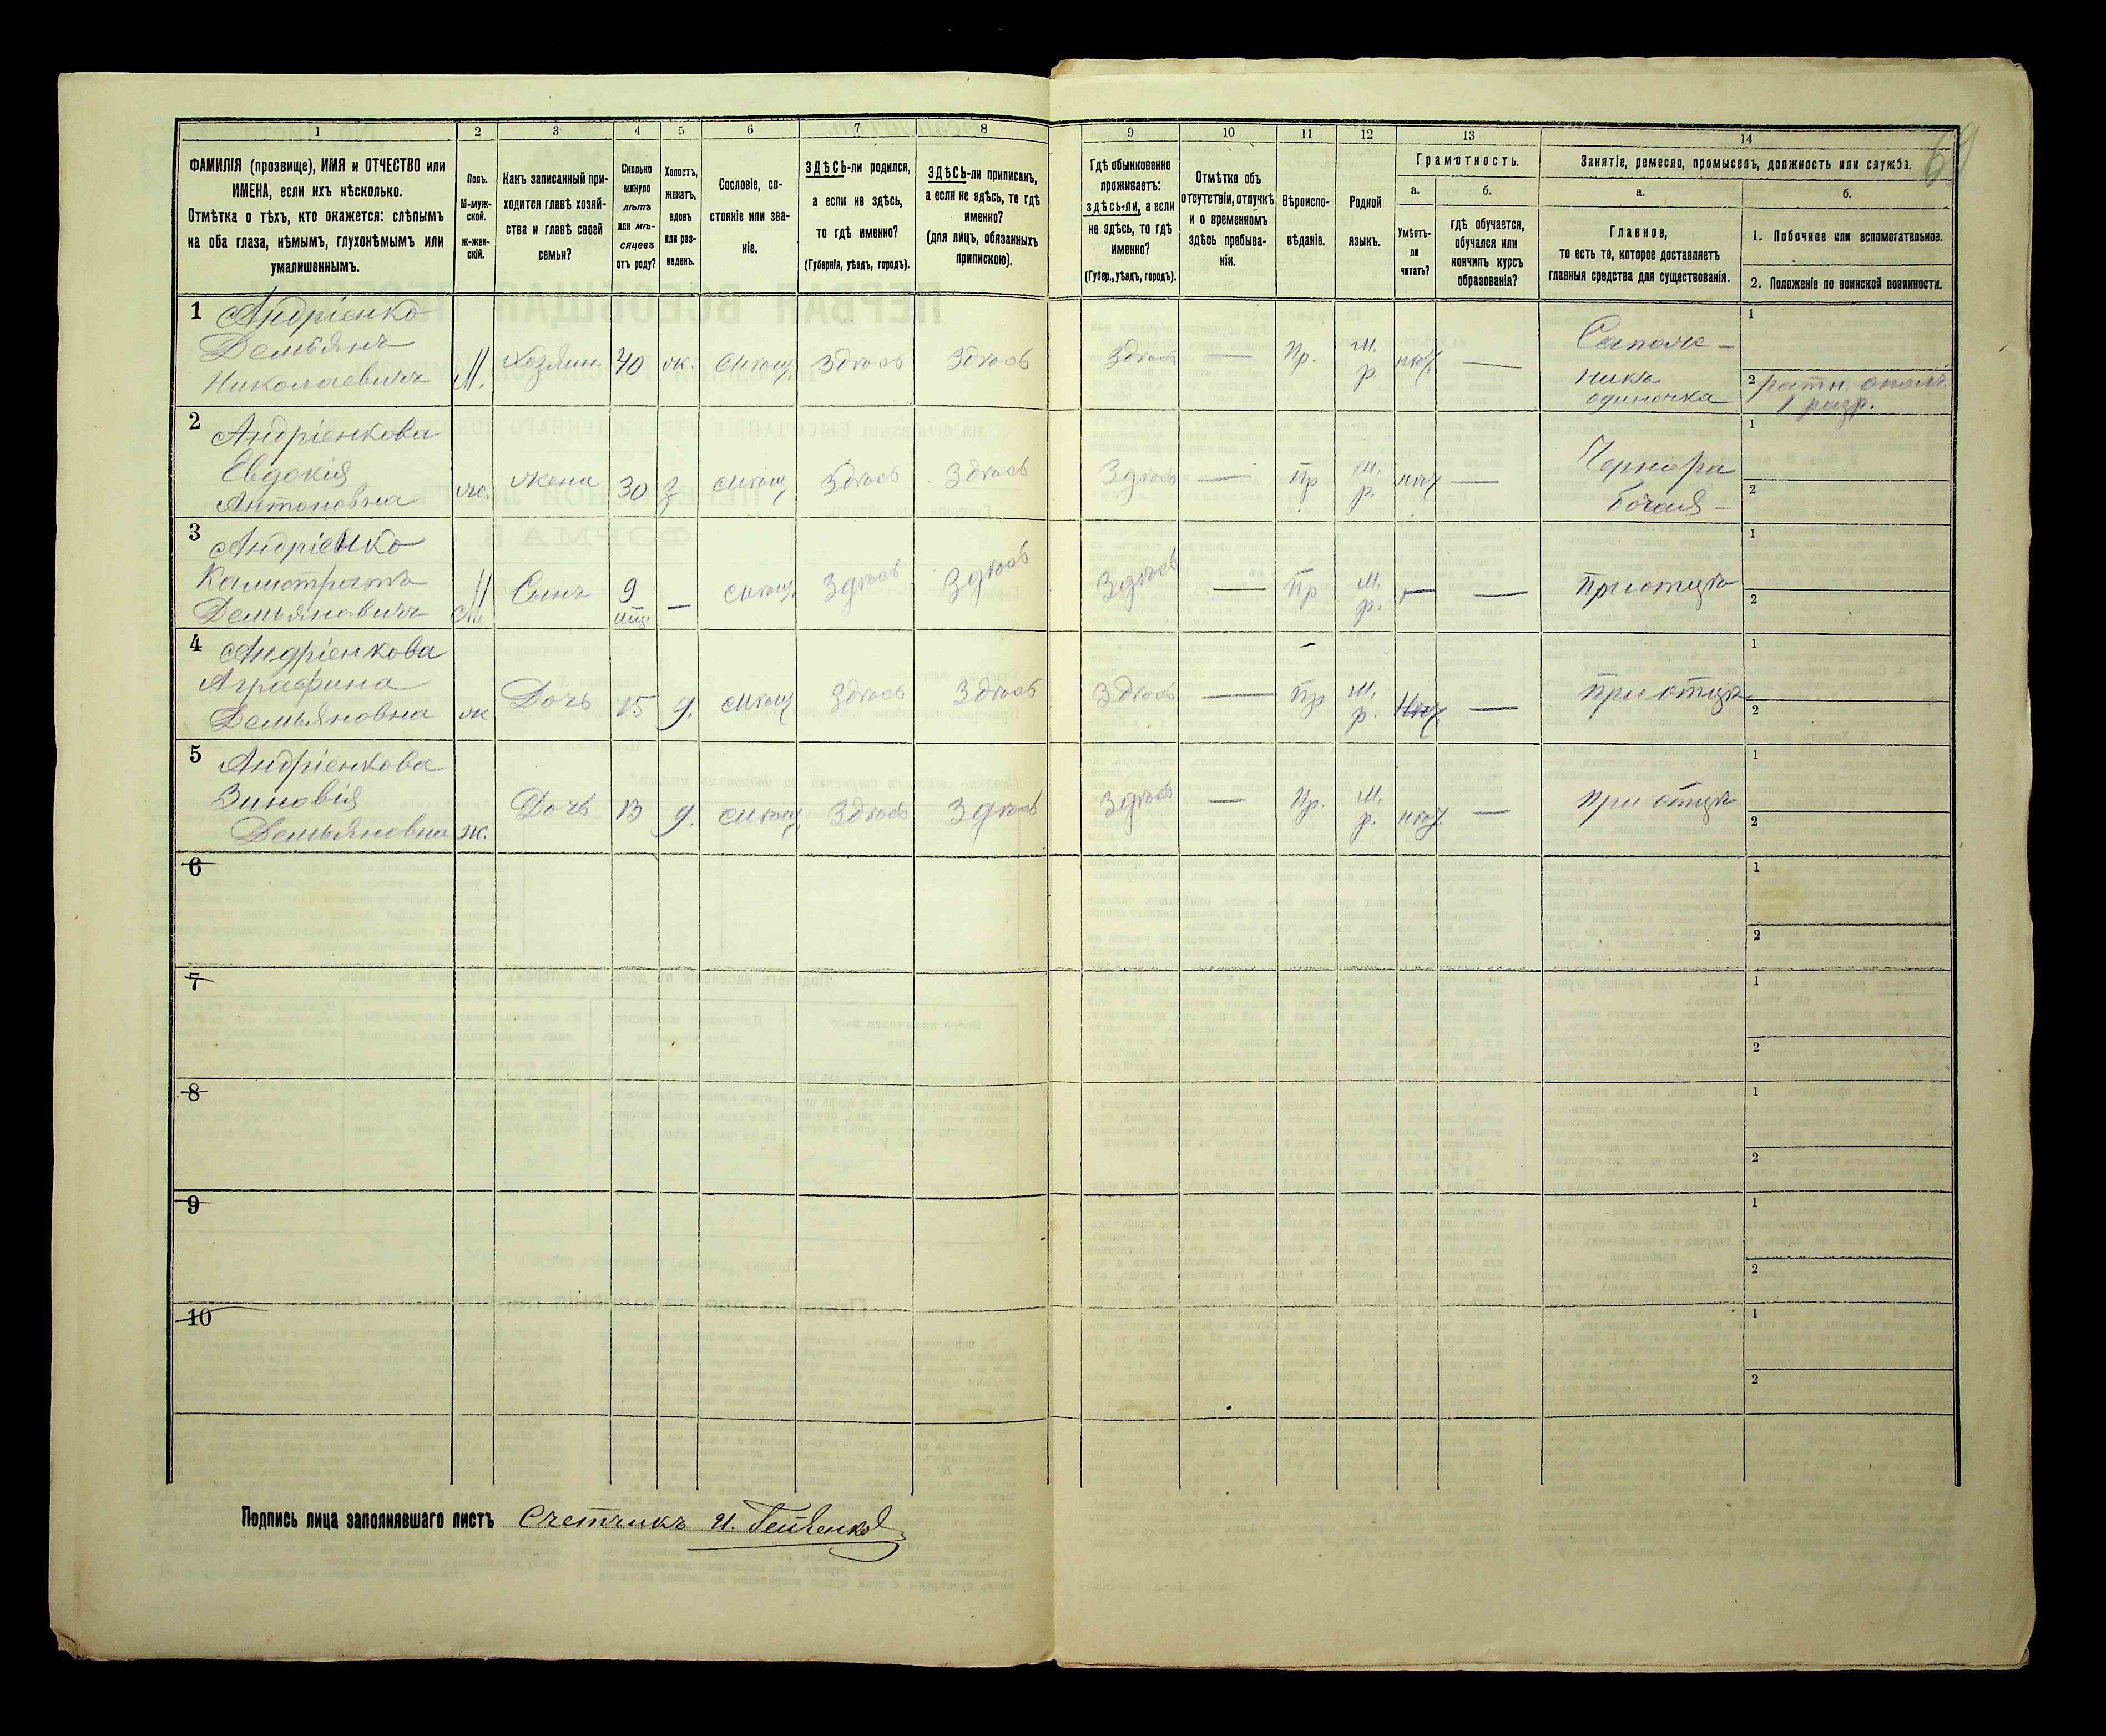 1 2 3 4 5 6 7 8 9 10 11 12 13 14
ФАМИЛІЯ (прозвище), ИМЯ и ОТЧЕСТВО или
ИМЕНА, если ихъ нѣсколько.
Отмѣтка о тѣхъ, кто окажется: слѣпымъ
на оба глаза, нѣмымъ, глухонѣмымъ или
умалишеннымъ.
Полъ.
М-муж-
ской.
Ж-жен-
скій.
Какъ записанный при-
ходится главѣ хозяй-
ства и главѣ своей
семьи?
Сколько
минуло
лѣтъ
или мѣ-
сяцевъ
отъ роду?
Холостъ,
женатъ,
вдовъ
или раз-
веденъ.
Сословіе, со-
стояніе или зва-
ніе.
ЗДѢСЬ-ли родился,
а если не здѣсь,
то гдѣ именно?
(Губернія, уѣздъ, городъ).
ЗДѢСЬ-ли приписанъ,
а если не здѣсь, то гдѣ
именно?
(для лицъ, обязанныхъ
припискою).
Гдѣ обыкновенно
проживаетъ:
здѣсь-ли, а если
не здѣсь, то гдѣ
именно?
(Губер., уѣздъ, городъ).
Отмѣтка объ
отсутствіи, отлучкѣ
и о временномъ
здѣсь пребыва-
ніи.
Вѣроиспо-
вѣданіе.
Родной
языкъ.
Грамотность.
а.
Умѣетъ-
ли
читать?
б.
гдѣ обучается,
обучался или
кончилъ курсъ
образованія?
Занятіе, ремесло, промыселъ, должность или служба.
а.
Главное,
то есть то, которое доставляетъ
главныя средства для существованія.
б.
1. Побочное или вспомогательное.
2. Положеніе по воинской повинности.
69
1 Андріенко
Демьянъ
Николаевичъ М. Хозяин. 40 ж. здѣсь здѣсь здѣсь — Пр. м. р. — Сапож-
никъ
одиночка
1
2 ратн. ополч.
1 разр.
2 Андріенкова
Евдокія
Антоновна ж. жена 30 з здѣсь здѣсь здѣсь — Пр м. р. — Чернора
бочая —
1
2
3 Андріенко
Калистратъ
Демьяновичъ М. Сынъ 9 — здѣсь здѣсь здѣсь — Пр м. р. — — при отцѣ
1
2
4 Андріенкова
Аграфина
Демьяновна ж Дочь 15 д. здѣсь здѣсь здѣсь — Пр м. р. — при отцѣ
1
2
5 Андріенкова
Зиновія
Демьяновна ж. Дочь 13 д. здѣсь здѣсь здѣсь — Пр. м. р. — при отцѣ
1
2
6
1
2
7
1
2
8
1
2
9
1
2
10
1
2
Подпись лица заполнявшаго листъ Счетчикъ И.